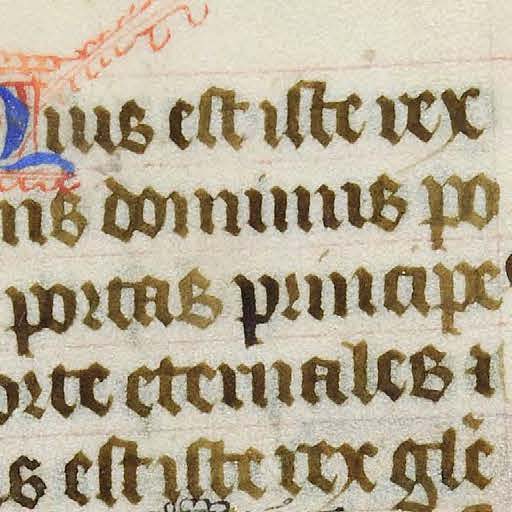 Quis est iste rex
ns dominus po
portas principe
orte eternales i
is est iste rex glē